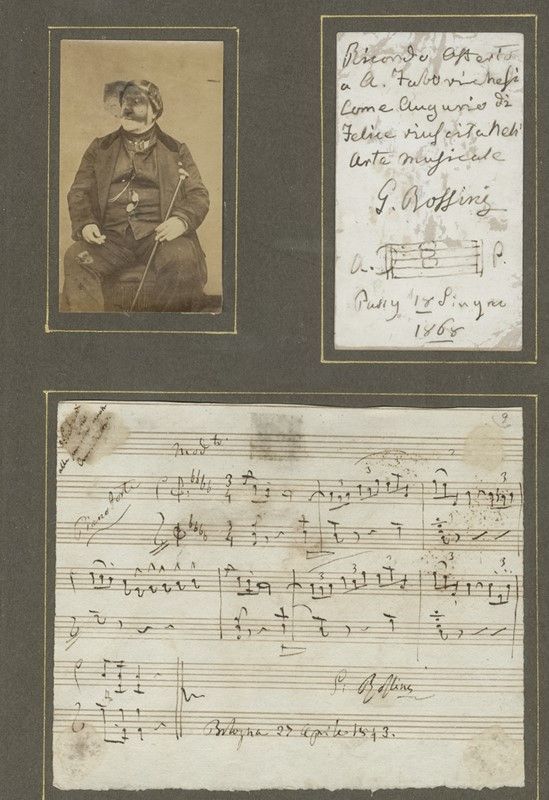 Ricordo offerto
a A.
come Augurio di
Felice riuscita nell'
Arte musicale
G. Rossini
A. P.
Passy 18 Giugno
1868
2
Mod.to
Pianoforte
3
4
3
3
3
4
3
3
G. Rossini
Bologna 27 Aprile 1843.